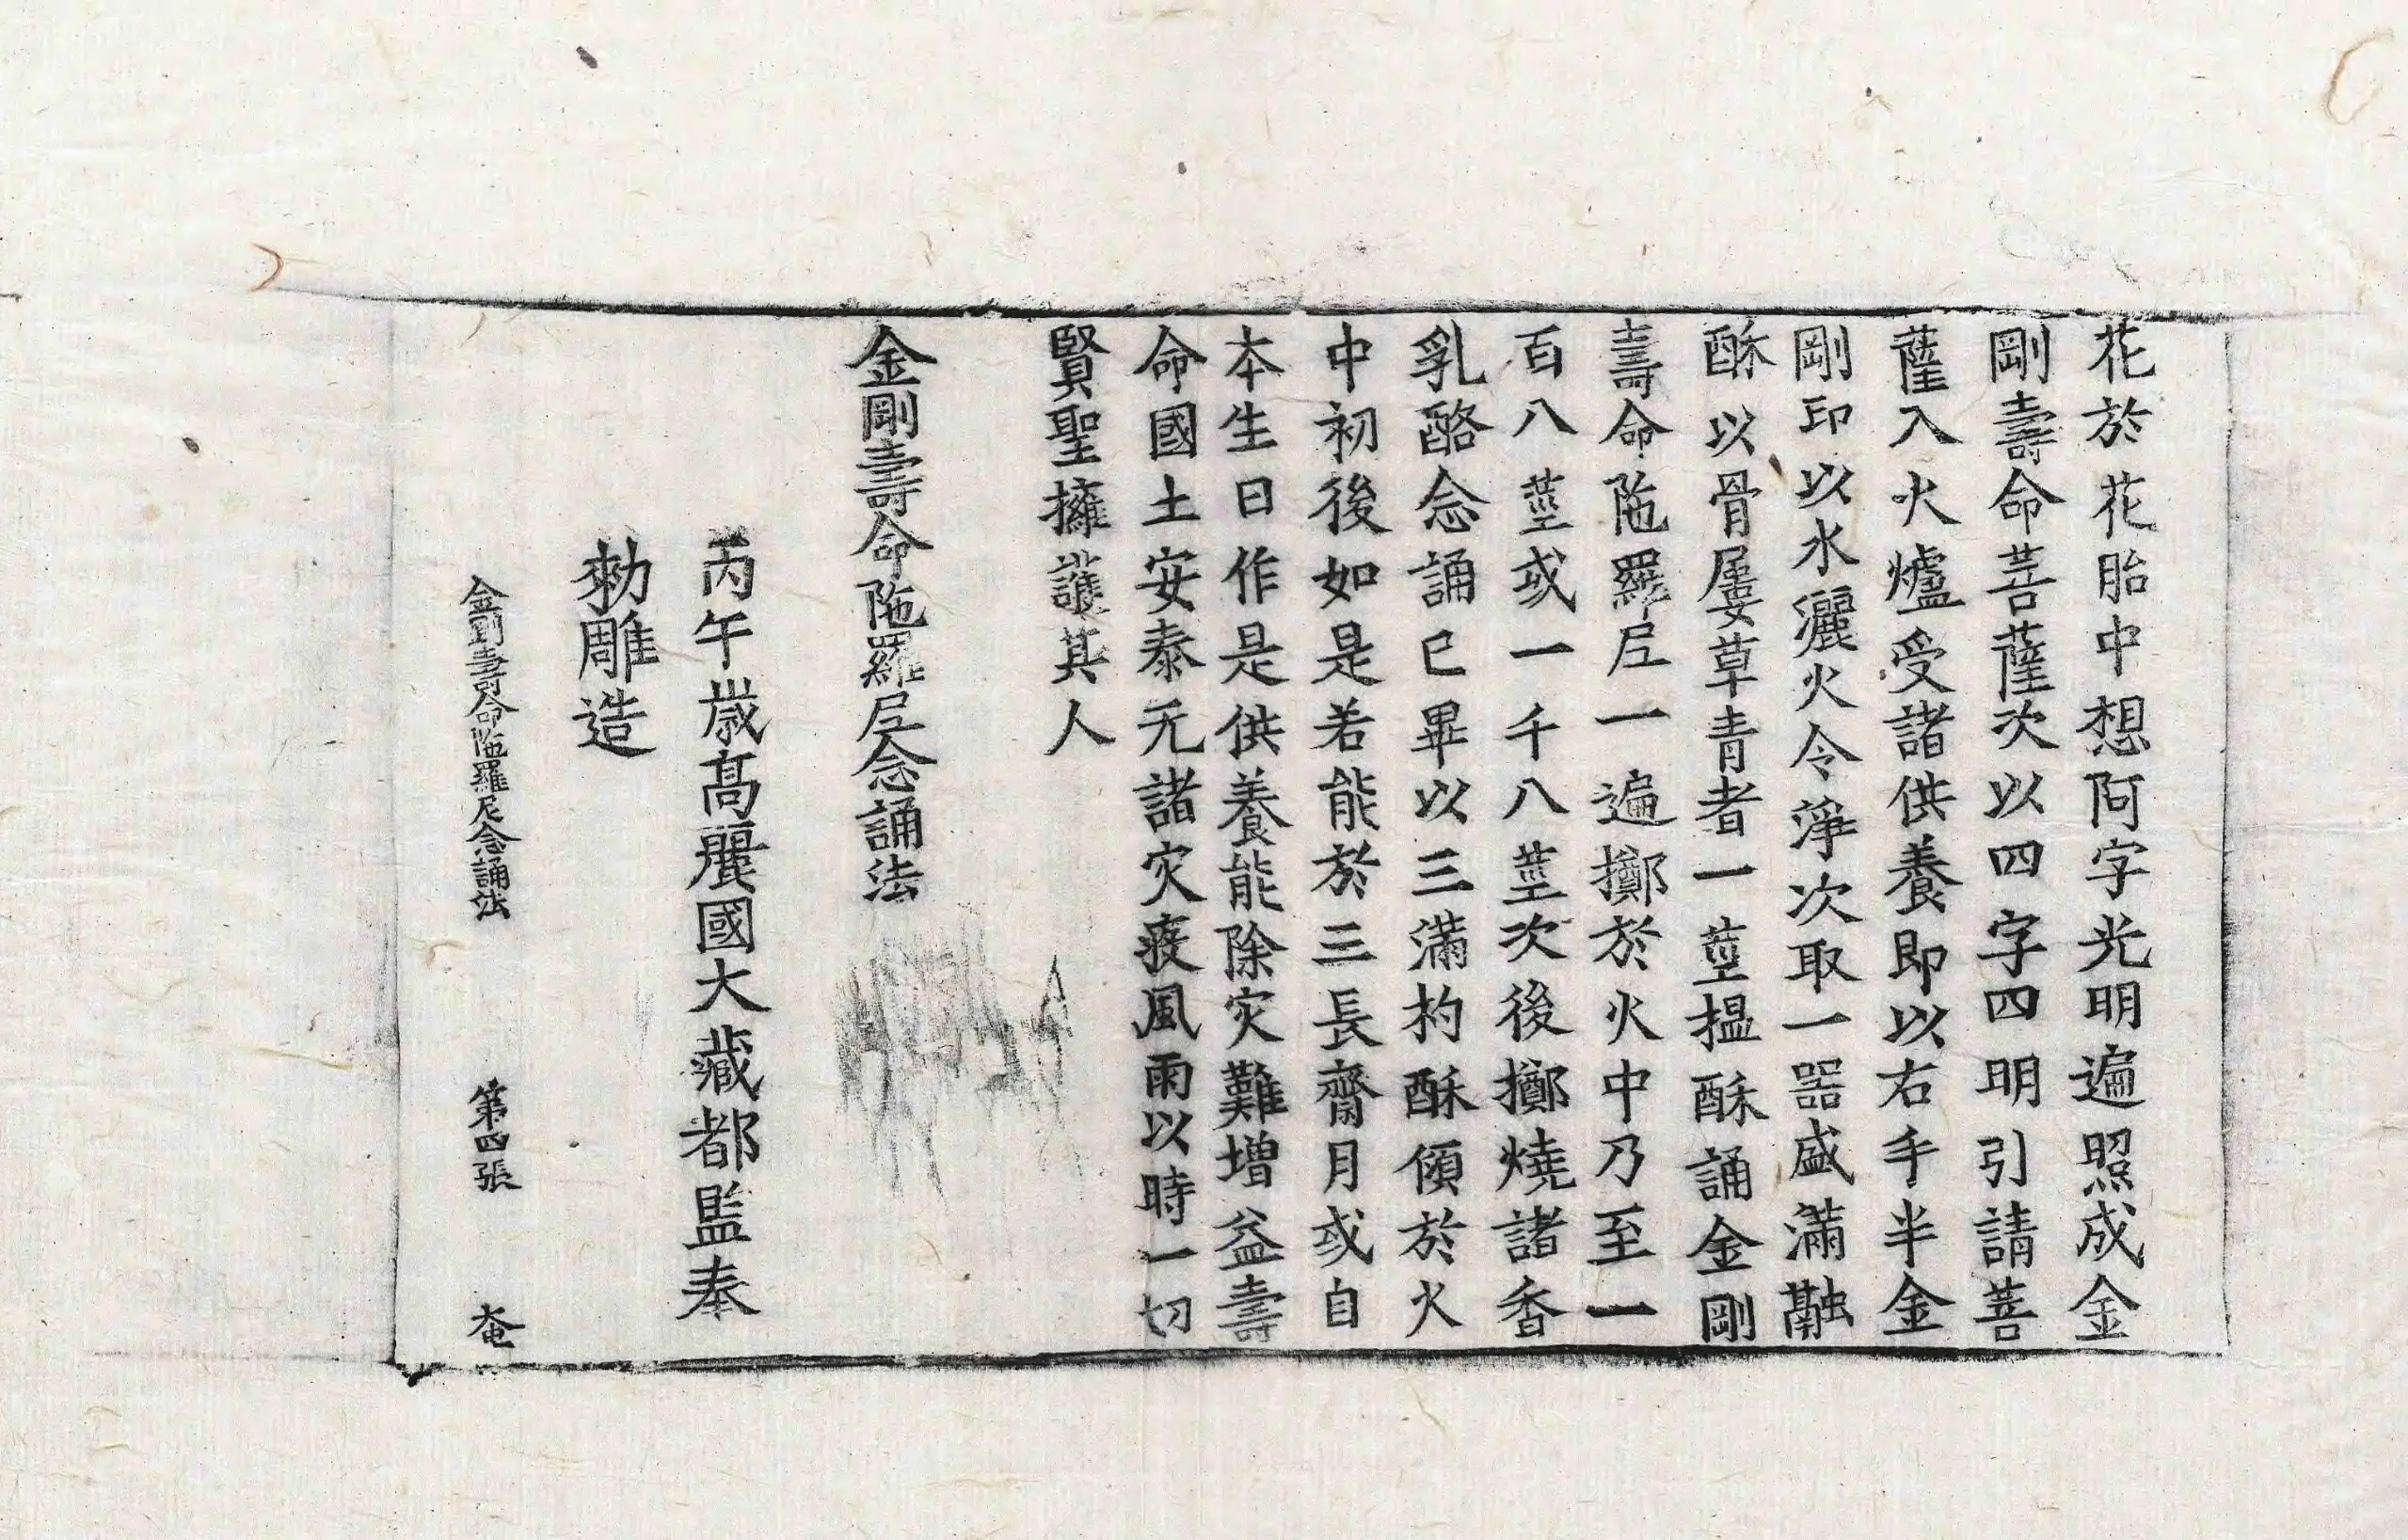 花於花胎中想阿字光明遍照成金
剛壽命菩薩次以四字四明引請菩
薩入火爐受諸供養即以右手半金
剛印以水灑火令淨次取一器盛滿融
酥以骨屢草青者一莖搵酥誦金剛
壽命陁羅尼一遍擲於火中乃至一
百八莖或一千八莖次後擲燒諸香
乳酪念誦已畢以三滿杓酥傾於火
中初後如是若能於三長齋月或自
本生日作是供養能除灾難增益壽
命國土安泰无諸灾疫風雨以時一切
賢聖擁護其人
金剛壽命陁羅尼念誦法
丙午歲高麗國大藏都監奉
勅雕造
金剛壽命陁羅尼念誦法 第四張 奄